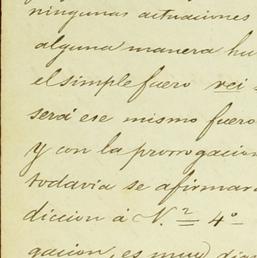 ningunas actuaciones
alguna manera hu
el simple fuero vei
será ese mismo fuero
y con la prorrogacion
todavia se afirmar
diccion á N.º 4º
gacion, es muy